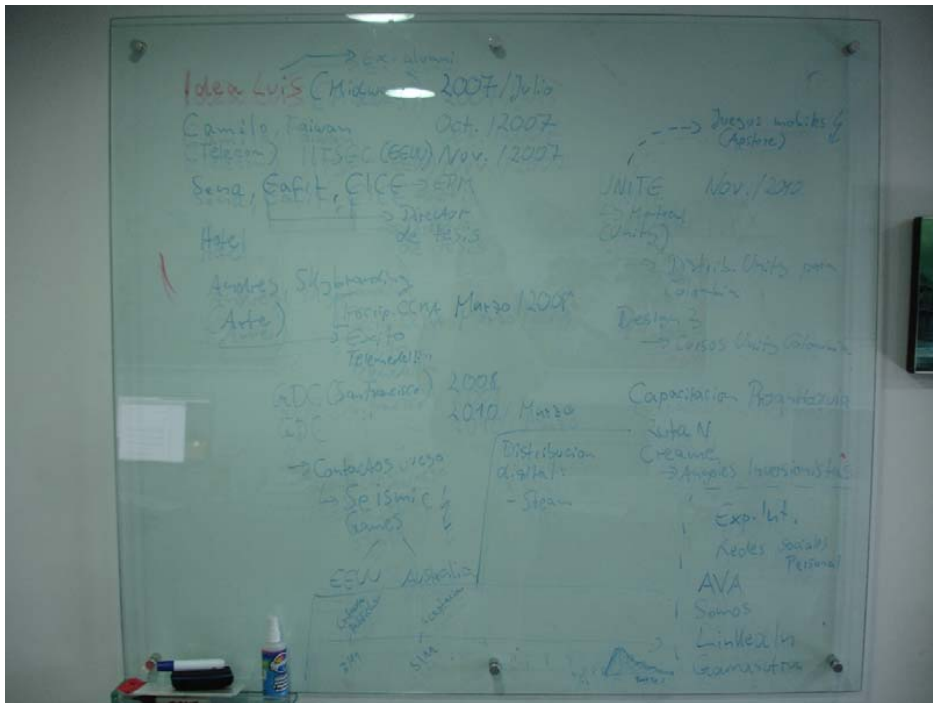 Ex-alumni
Idea Luis 2007/Julio
Camilo, Taiwan Oct. /2007
(Telecom) IITSEC (EEUU) Nov. /2007
Sena, Eafit, CICE → EPM
→ Director
de tesis
Hotel
Andres, Skybranding
(Arte) Marzo /2008
→ Exito
Telemedellin
GDC (San francisco) 2008
GDC 2010 Marzo
→ Contactos
↳ Seismic
Games
EEUU Australia
Distribucion
digital:
- Steam
Juegos mobiles
(Apstore)
UNITE Nov. /2010
(Unity)
→ Distrib. Unity para
Colombia
Design 3
→ Cursos Unity Colombia
Capacitacion
Ruta N
Creame
→ Angeles Inversionistas
Exp. Int.
Redes Sociales
Personal
AVA
Somos
LinkedIn
Gamasutra